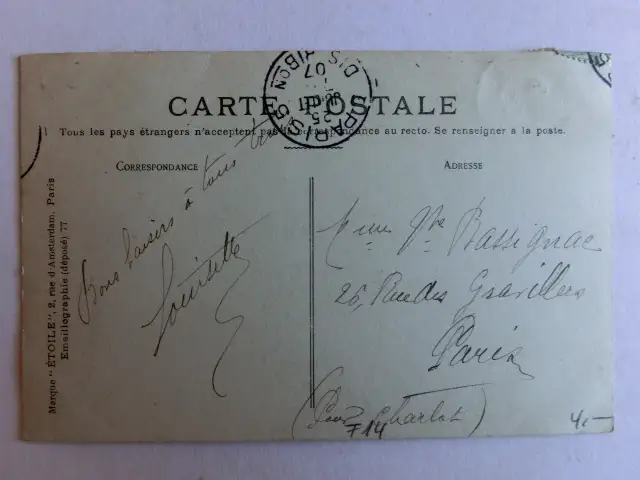 CARTE POSTALE
Tous les pays étrangers n'acceptent pas la correspondance au recto. Se renseigner à la poste.
CORRESPONDANCE
ADRESSE
Bons baisers à tous trois
Louisette
Mme Vve Bassignac
26, Rue des Gravilliers
Paris
(Pour Charlot)
F14
4,-
Marque "ÉTOILE", 2, rue d'Amsterdam, Paris
Emaillographie (déposé) 77
PARIS
25
07
DISTRIBUTION